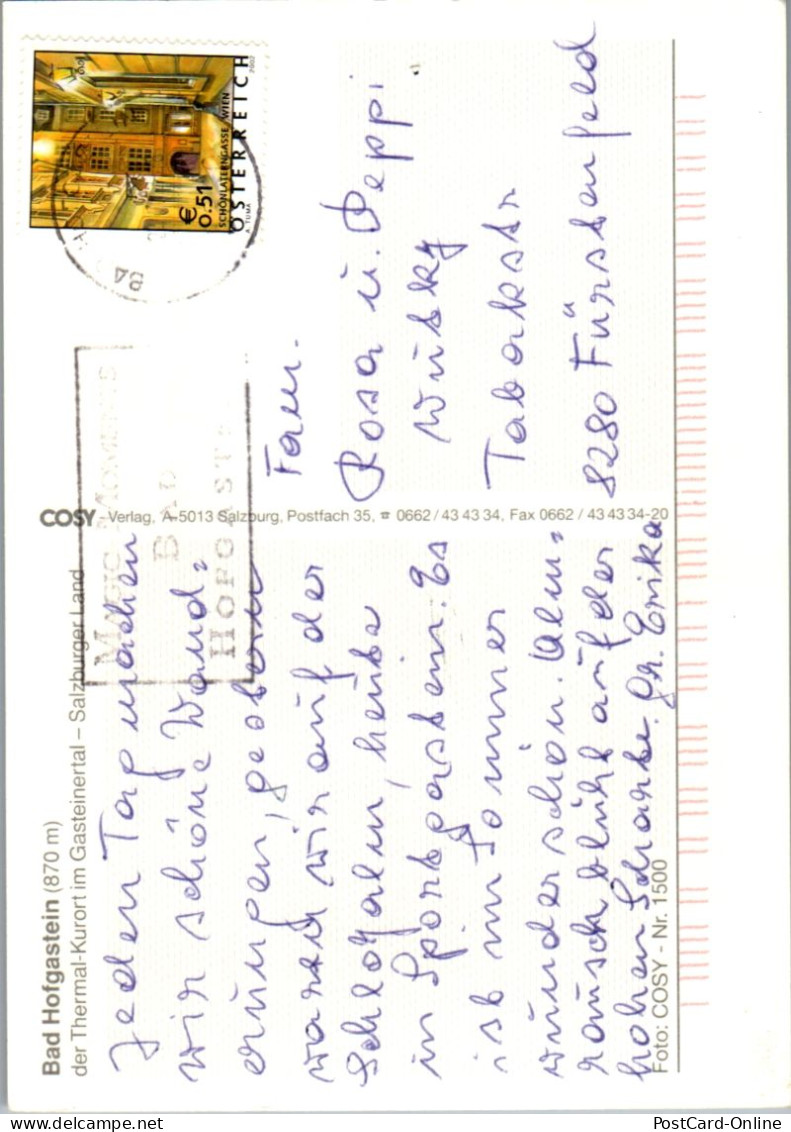 Bad Hofgastein (870 m)
der Thermal-Kurort im Gasteinertal – Salzburger Land
Jeden Tag machen
wir schöne Wand=
erungen, gestern
waren wir auf der
Schloßalm, heute
in Sportgastein. Es
ist im Sommer
wunderschön. Alm=
rausch blüht auf der
hohen Scharte. Gr. Erika
Foto: COSY - Nr. 1500
COSY Verlag, A-5013 Salzburg, Postfach 35, ☎ 0662 / 43 43 34, Fax 0662 / 43 43 34-20
MAGIC MOMENTS
BAD
HOFGAST
€ 0.51
SCHÖNLATERNGASSE, WIEN
ÖSTERREICH
A. TUMA
2002
Fam.
Rosa u. Peppi
Wutsky
Tabakstr
8280 Fürstenfeld
PostCard-Online